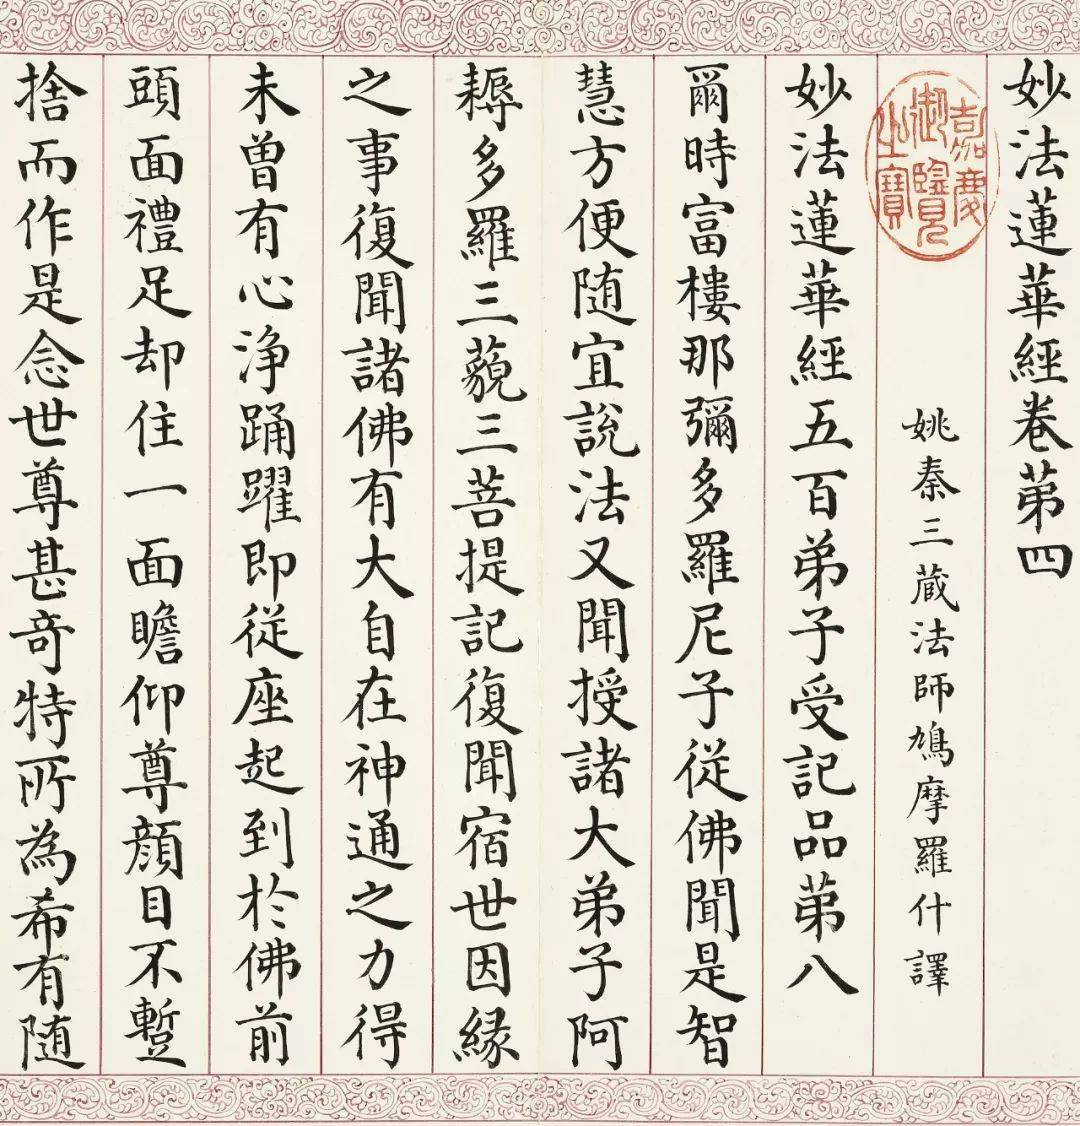 妙法蓮華經卷苐四
嘉慶御覽之寶
姚秦三藏法師鳩摩羅什譯
妙法蓮華經五百弟子受記品苐八
爾時富樓那彌多羅尼子從佛聞是智
慧方便随宜說法又聞授諸大弟子阿
耨多羅三藐三菩提記復聞宿世因緣
之事復聞諸佛有大自在神通之力得
未曾有心淨踊躍即從座起到於佛前
頭面禮足却住一面瞻仰尊顏目不蹔
捨而作是念世尊甚奇特所為希有随